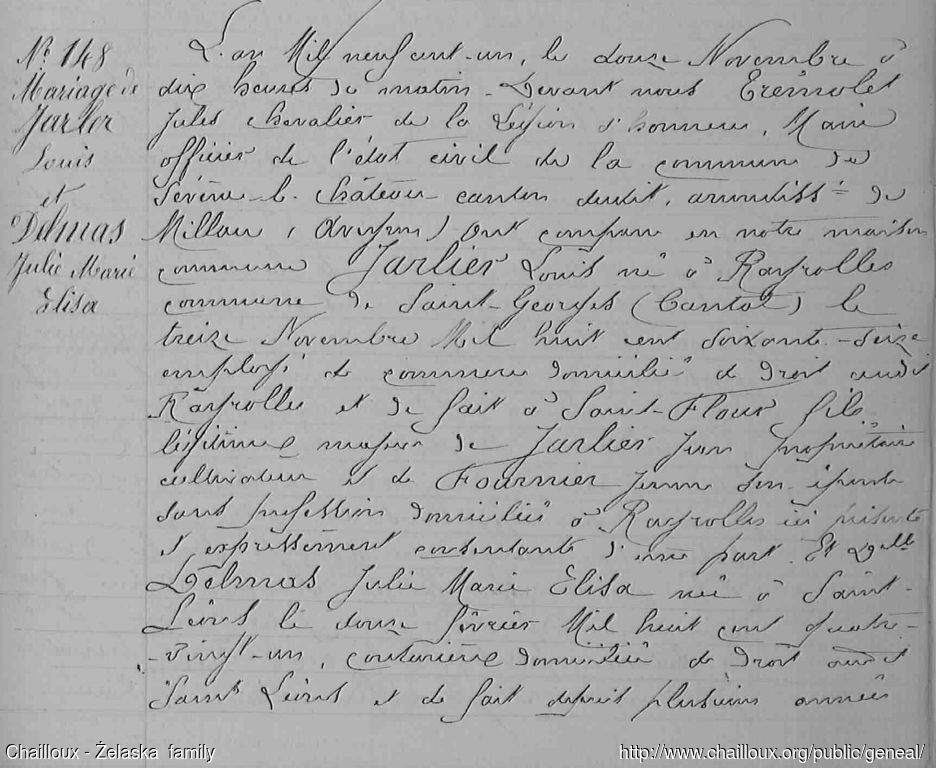 N° 148
Mariage de
Jarlier
Louis
et
Delmas
Julie Marie
Elisa
L'an Mil neuf cent-un, le douze Novembre à
dix heures du matin - Devant nous Trémolet
Jules chevalier de la Légion d'honneur, Maire
officier de l'état civil de la commune de
Sévérac-le-château canton dudit, arrondisst de
Millau (Aveyron) ont comparu en notre maison
commune Jarlier Louis né à Rayrolles
commune de Saint-Georges (Cantal) le
treize Novembre Mil huit cent soixante-seize
employé de commerce domicilié de droit audit
Rayrolles et de fait à Saint-Flour fils
légitime majeur de Jarlier Jean propriétaire
cultivateur et de Fournier Jeanne son épouse
sans profession domiciliés à Rayrolles ici présents
et expressément consentants d'une part. Et Delle
Delmas Julie Marie Elisa née à Saint-
Léons le douze février Mil huit cent quatre-
-vingt-un, couturière domiciliée de droit audit
Saint Léons et de fait depuis plusieurs années
Chailloux - Żelaska family
http://www.chailloux.org/public/geneal/